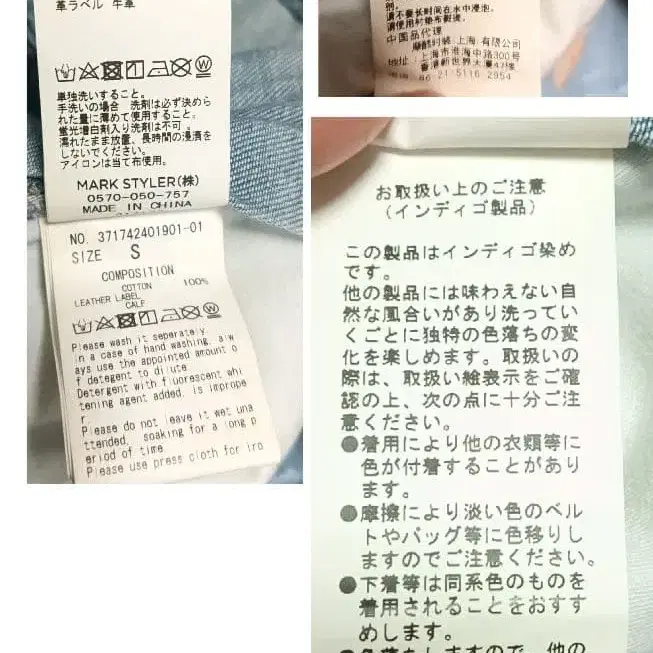 革ラベル 牛革
単独洗いすること。
手洗いの場合 洗剤は必ず決めら
れた量に薄めて使用すること。
蛍光増白剤入り洗剤は不可。
濡れたまま放量、長時間の浸漬を
しないでください。
アイロンは当て布使用。
MARK STYLER(株)
0570-050-757
MADE IN CHINA
NO. 371742401901-01
SIZE S
COMPOSITION
COTTON 100%
LEATHER LABEL
CALF
Please wash it seperately
In a case of hand washing, alw
ays use the appointed amount o
f detegent to dilute
Detergent with fluorescent whi
tening agent added, is imprope
r.
Please do not leave it wet una
ttended, soaking for a long p
eriod of time
Please use press cloth for iro
剂。
请不要长时间在水中浸泡。
请使用衬垫布熨烫。
中国总代理
摩酷时装(上海)有限公司
地址 上海市淮海中路300号
香港新世界大厦
86 21 5116 2954
お取扱い上のご注意
(インディゴ製品)
この製品はインディゴ染め
です。
他の製品には味わえない自
然な風合いがあり洗ってい
くごとに独特の色落ちの変
化を楽しめます。取扱いの
際は、取扱い絵表示をご確
認の上、次の点に十分ご注
意ください。
●着用により他の衣類等に
色が付着することがあり
ます。
●摩擦により淡い色のベル
トやバッグ等に色移りし
ますのでご注意ください。
●下着等は同系色のものを
着用されることをおすす
めします。
●色落ちしますので、他の